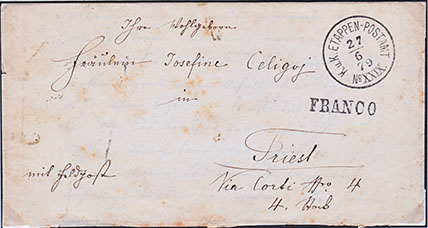 Ihre Wohlgeboren
Fräulein Josefine Celigoj
in
Triest
Via Corti No 4
4. Stock
mit Feldpost
K.u.K. ETAPPEN-POSTAMT No XXXIX.
27
6
79
FRANCO